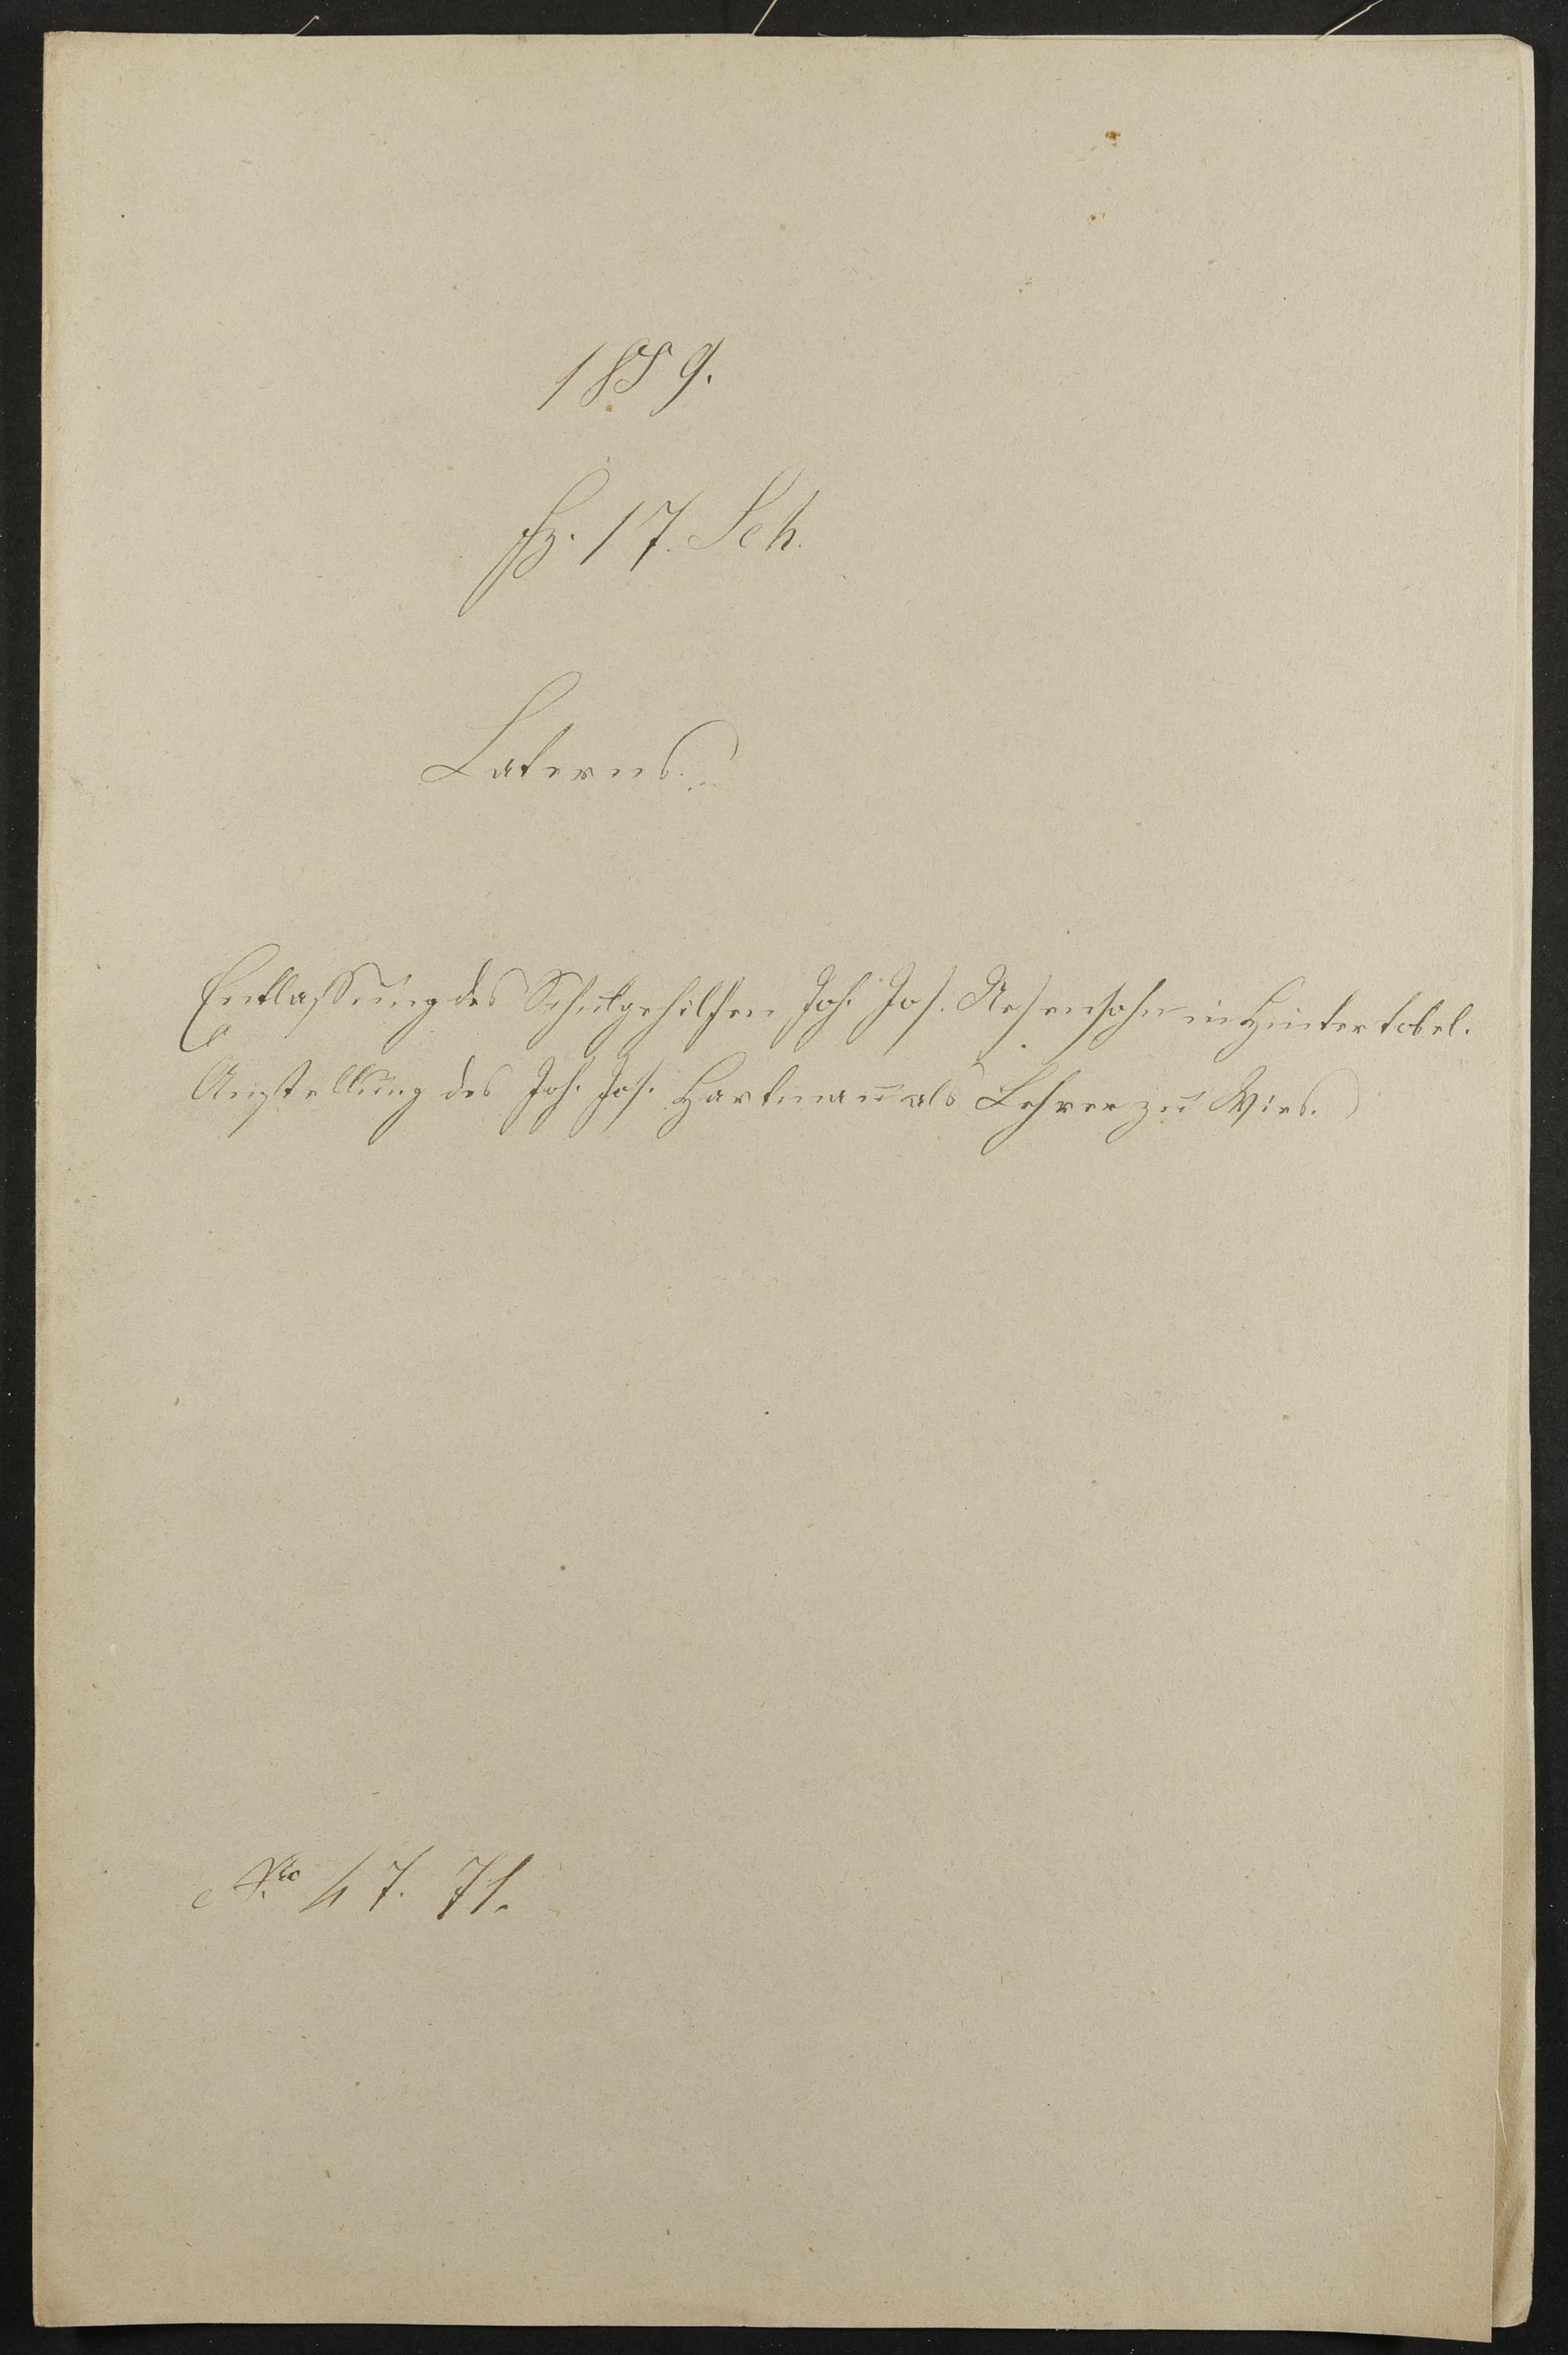 1859.
Fz. 17. Sch.
Laterns.
Entlassung des Schulgehilfen Joh. Jos. Nesensohn in Hintertobel.
Anstellung des Joh. Jos. Hartman̄ als Lehrer zu Wies.
Nro 47. 71.